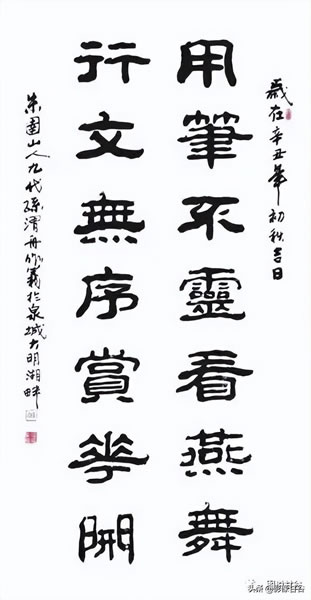 歲在辛丑年初秋吉日
用筆不靈看燕舞
行文無序賞花開
朱圉山人九代孫渭舟作義於泉城大明湖畔
头条 @影像甘谷